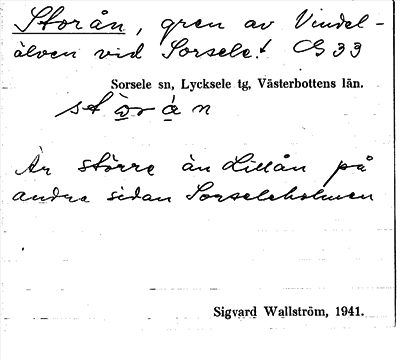 Storån, gren av Vindel-
älven vid Sorsele. G 33
Sorsele sn, Lycksele tg, Västerbottens län.
stòrán
Är större än Lillån på
andra sidan Sorseleholmen
Sigvard Wallström, 1941.